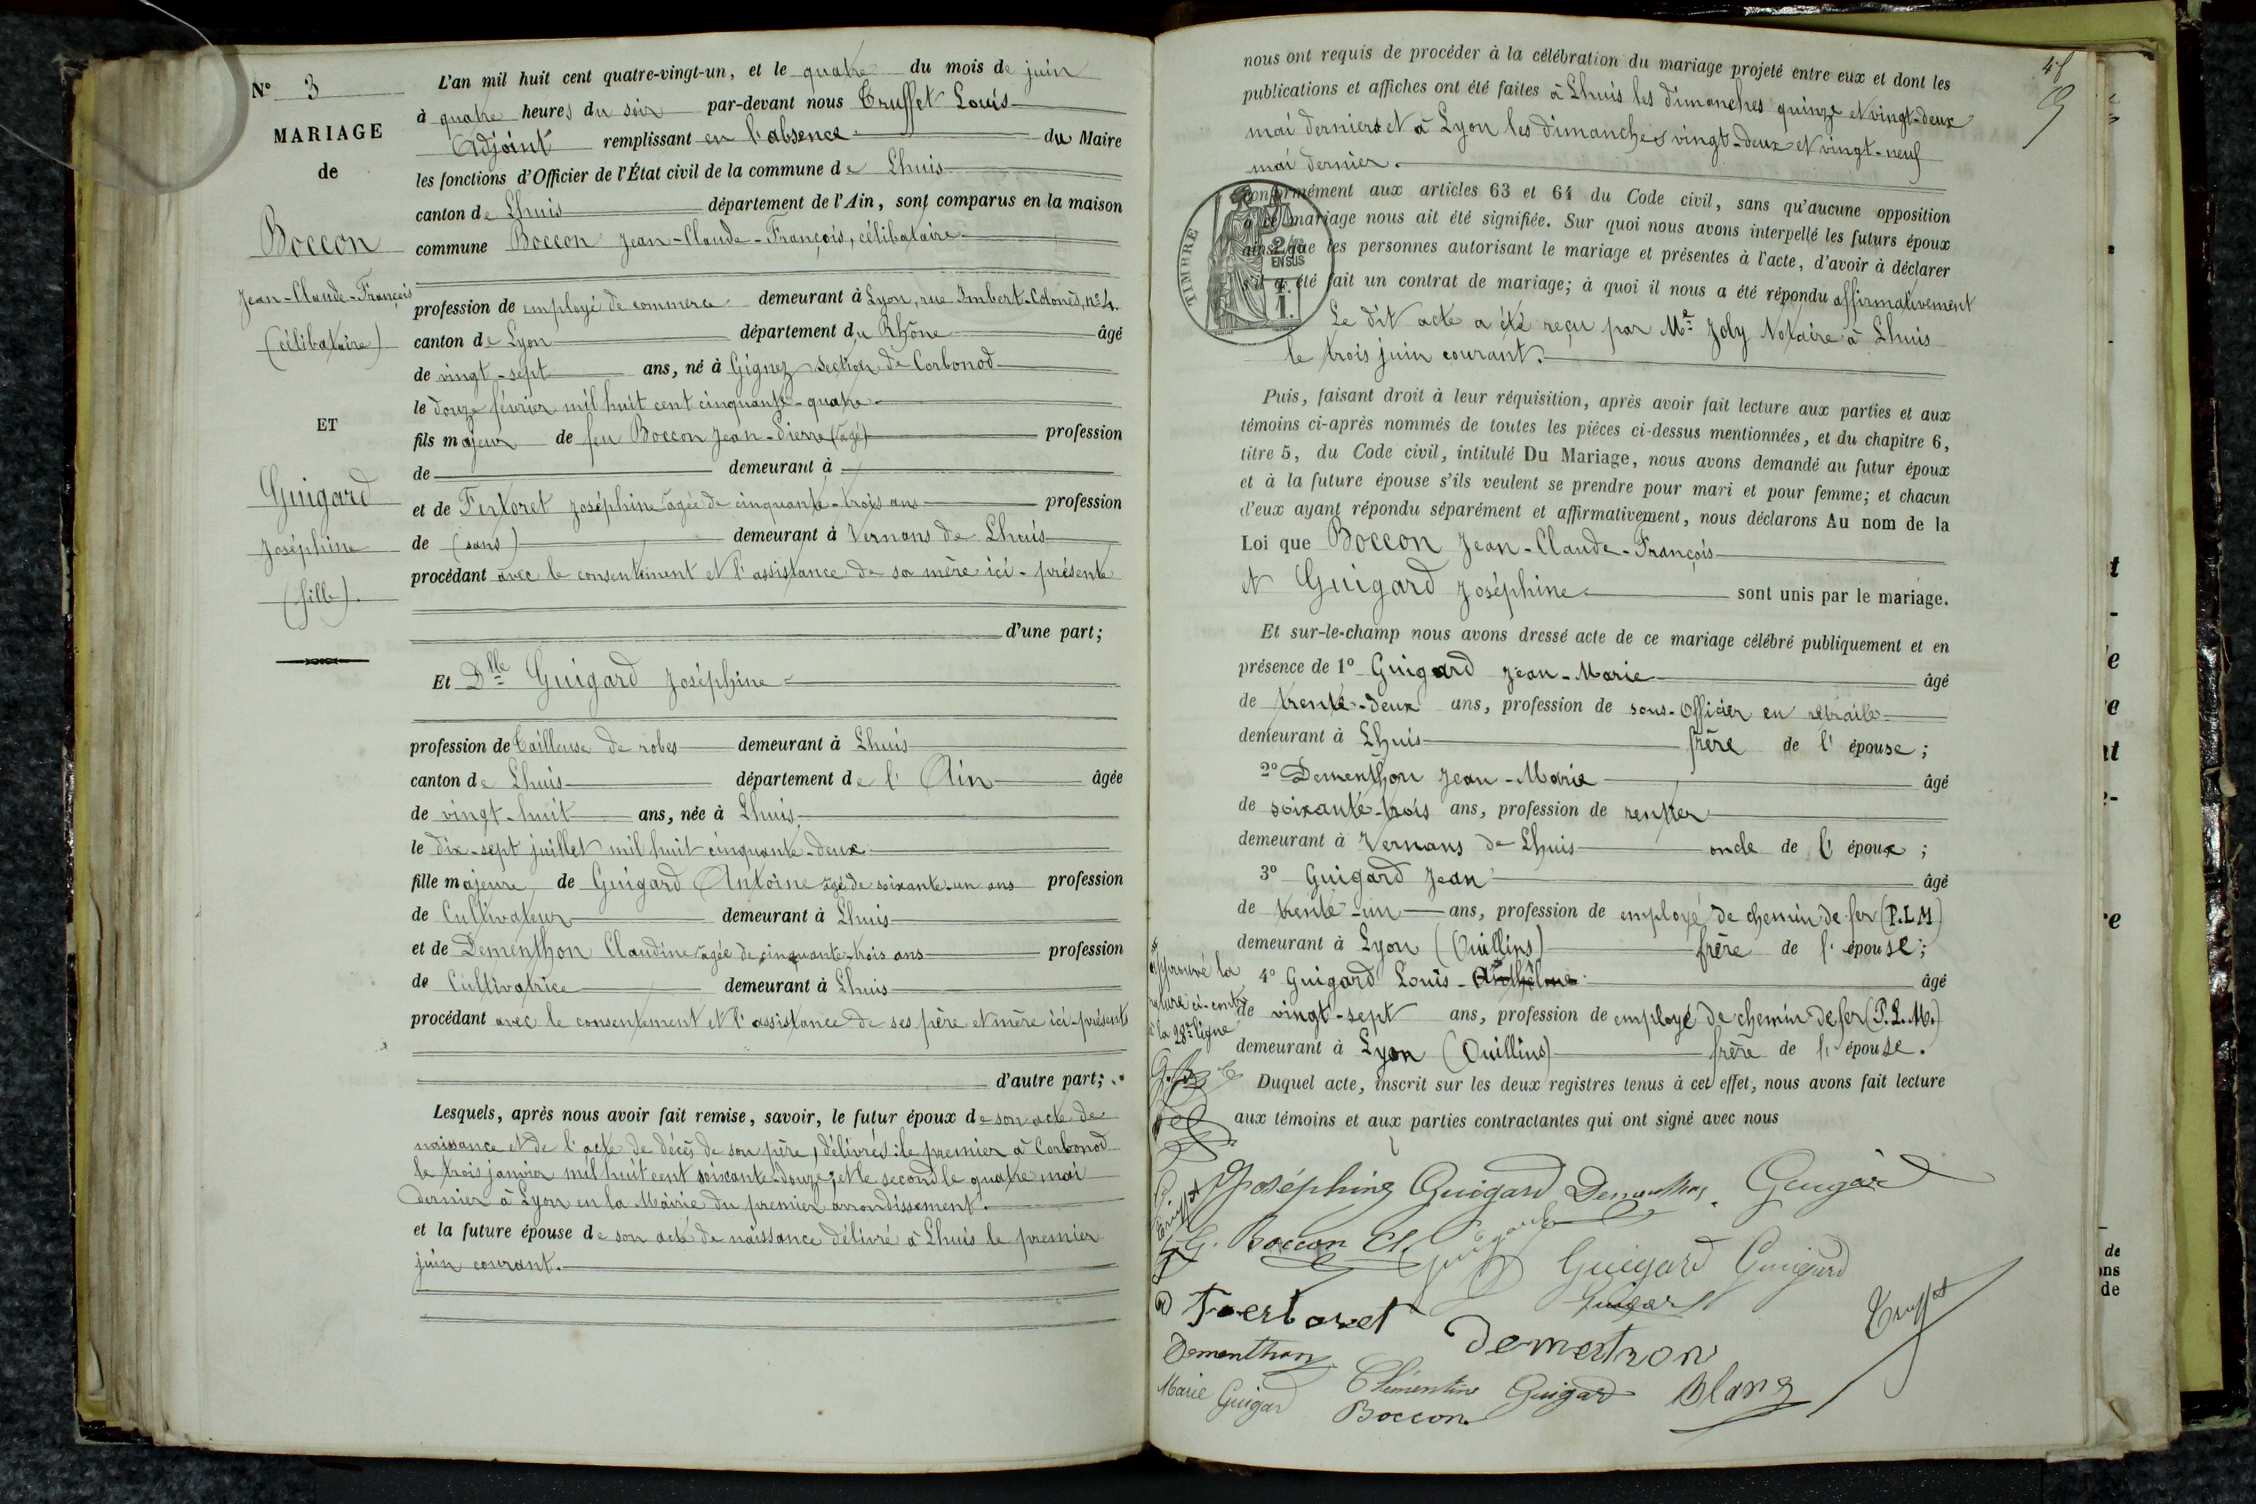 N° 3
MARIAGE
de
Boccon
Jean-Claude-François
(célibataire)
ET
Guigard
Joséphine
(fille).
L'an mil huit cent quatre-vingt-un, et le quatre du mois de juin
à quatre heures du soir par-devant nous Truffet Louis
Adjoint remplissant en l'absence du Maire
les fonctions d'Officier de l'État civil de la commune de Lhuis
canton de Lhuis département de l'Ain, sont comparus en la maison
commune Boccon Jean-Claude-François, célibataire
profession de employé de commerce demeurant à Lyon, rue Imbert-Colomès, n° 4.
canton de Lyon département du Rhône âgé
de vingt-sept ans, né à Gignez section de Corbonod
le douze février mil huit cent cinquante-quatre
fils majeur de feu Boccon Jean-Pierre (âgé) profession
de demeurant à
et de Fertoret Joséphine âgée de cinquante-trois ans profession
de (sans) demeurant à Vernans de Lhuis
procédant avec le consentement et l'assistance de sa mère ici-présente
d'une part;
Et Dlle Guigard Joséphine
profession de Tailleuse de robes demeurant à Lhuis
canton de Lhuis département de l'Ain âgée
de vingt-huit ans, née à Lhuis,
le dix-sept juillet mil huit cinquante-deux
fille majeure de Guigard Antoine âgé de soixante-un ans profession
de Cultivateur demeurant à Lhuis
et de Dementhon Claudine âgée de cinquante-trois ans profession
de Cultivatrice demeurant à Lhuis
procédant avec le consentement et l'assistance de ses père et mère ici-présents
d'autre part;
Lesquels, après nous avoir fait remise, savoir, le futur époux de son acte de
naissance et de l'acte de décès de son père, délivrés: le premier à Corbonod
le trois janvier mil huit cent soixante-douze, et le second le quatre mai
dernier à Lyon en la Mairie du premier arrondissement.
et la future épouse de son acte de naissance délivré à Lhuis le premier
juin courant.
48
nous ont requis de procéder à la célébration du mariage projeté entre eux et dont les
publications et affiches ont été faites à Lhuis les dimanches quinze et vingt-deux
mai derniers et à Lyon les dimanches vingt-deux et vingt-neuf
mai dernier.
conformément aux articles 63 et 64 du Code civil, sans qu'aucune opposition
à ce mariage nous ait été signifiée. Sur quoi nous avons interpellé les futurs époux
ainsi que les personnes autorisant le mariage et présentes à l'acte, d'avoir à déclarer
s'il a été fait un contrat de mariage; à quoi il nous a été répondu affirmativement
TIMBRE
2/10
EN SUS
Le dit acte a été reçu par Me Joly Notaire à Lhuis
le trois juin courant.
Puis, faisant droit à leur réquisition, après avoir fait lecture aux parties et aux
témoins ci-après nommés de toutes les pièces ci-dessus mentionnées, et du chapitre 6,
titre 5, du Code civil, intitulé Du Mariage, nous avons demandé au futur époux
et à la future épouse s'ils veulent se prendre pour mari et pour femme; et chacun
d'eux ayant répondu séparément et affirmativement, nous déclarons Au nom de la
Loi que Boccon Jean-Claude-François
et Guigard Joséphine sont unis par le mariage.
Et sur-le-champ nous avons dressé acte de ce mariage célébré publiquement et en
présence de 1° Guigard Jean-Marie âgé
de trente-deux ans, profession de sous-Officier en retraite
demeurant à Lhuis frère de l'épouse;
2° Dementhon Jean-Marie âgé
de soixante-trois ans, profession de rentier
demeurant à Vernans de Lhuis oncle de l'époux;
3° Guigard Jean âgé
de trente-un ans, profession de employé de chemin de fer (P.L.M)
demeurant à Lyon (Oullins) frère de l'épouse;
4° Guigard Louis-Anthelme âgé
de vingt-sept ans, profession de employé de chemin de fer (P.L.M.)
demeurant à Lyon (Oullins) frère de l'épouse.
approuvé la
rature ci-contre
à la 28me ligne
Duquel acte, inscrit sur les deux registres tenus à cet effet, nous avons fait lecture
aux témoins et aux parties contractantes qui ont signé avec nous
Joséphine Guigard Dementhon Guigard
Boccon Cl. Guigard
Guigard Guigard
Guigard
Truffet
Fertoret
Dementhon
Dementhon
Marie Guigard
Clémentine Guigard Blanz
Boccon